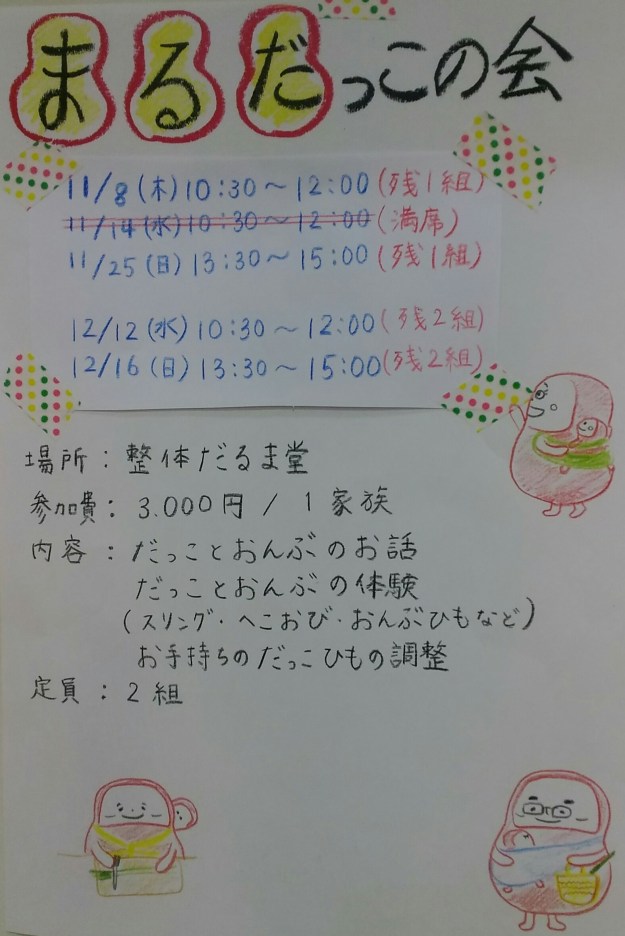 まるだっこの会
11/8(木)10:30～12:00(残1組)
11/14(水)10:30～12:00(満席)
11/25(日)13:30～15:00(残1組)
12/12(水)10:30～12:00(残2組)
12/16(日)13:30～15:00(残2組)
場所：整体だるま堂
参加費：3.000円/1家族
内容：だっことおんぶのお話
だっことおんぶの体験
(スリング・へこおび・おんぶひもなど)
お手持ちのだっこひもの調整
定員：2組